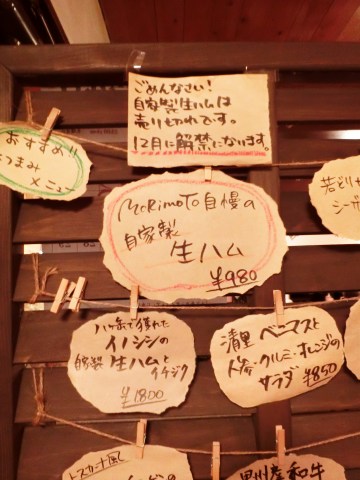 ごめんなさい！
自家製生ハムは
売り切れです。
12月に解禁になります。
おすすめ!!
おつまみ
メニュー
MORIMOTO自慢の
自家製
生ハム
¥980
若どり
シーザ
八ヶ岳で獲れた
イノシシの
自家製 生ハムと
イチジク
¥1800
清里 ベーコンと
人参・クルミ・オレンジの
サラダ ¥850
トスカーナ風
甲州産和牛